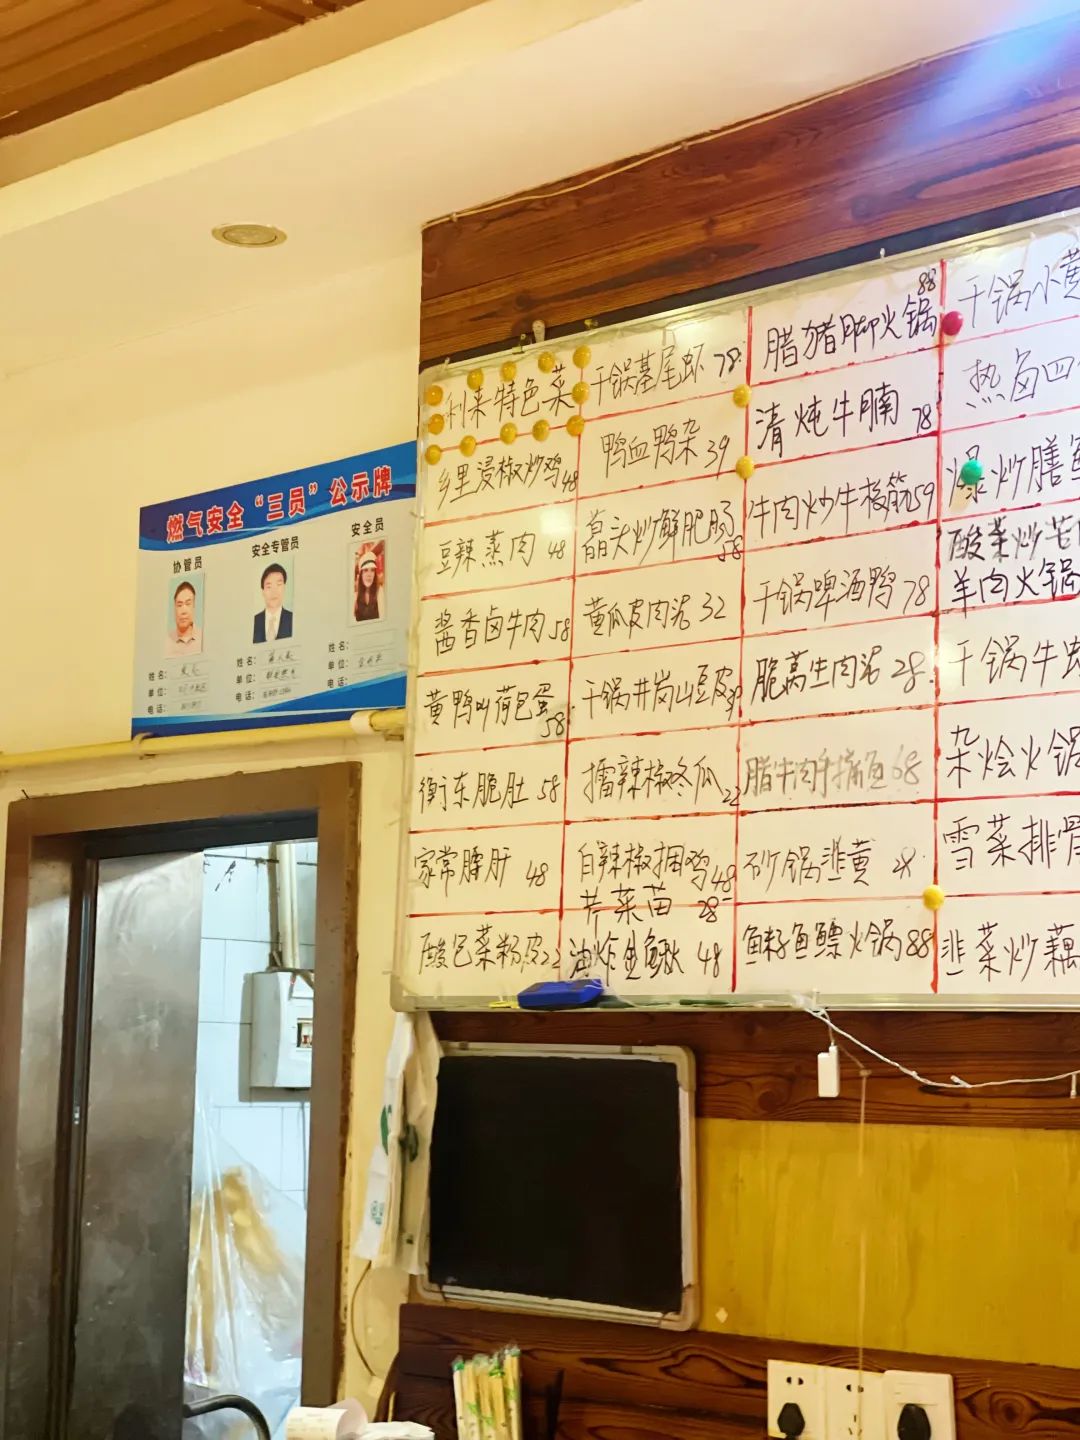 燃气安全“三员”公示牌
协管员
安全专管员
安全员
姓名：
单位：
电话：
姓名：
单位：
电话：
姓名：
单位：
电话：
利来特色菜
乡里浸椒炒鸡48
豆辣蒸肉 48
酱香卤牛肉58
黄鸭叫荷包蛋58
衡东脆肚 58
家常脖肝 48
酸包菜粉皮22
干锅基尾虾 78
鸭血鸭杂 39
藠头炒鲜肥肠58
黄瓜皮肉泥 32
干锅井岗山豆皮
擂辣椒冬瓜22
白辣椒捆鸡48
芹菜苗 28
油炸鱼鳅 48
88
腊猪脚火锅
清炖牛腩 78
牛肉炒牛板筋59
干锅啤酒鸭78
脆萵生肉泥28
腊牛肉手撕鱼68
砂锅韭黄 28
鱼籽鱼鳔火锅88
干锅小黄
热卤四
爆炒膳
酸菜炒苦
羊肉火锅
干锅牛
杂烩火锅
雪菜排骨
韭菜炒藕